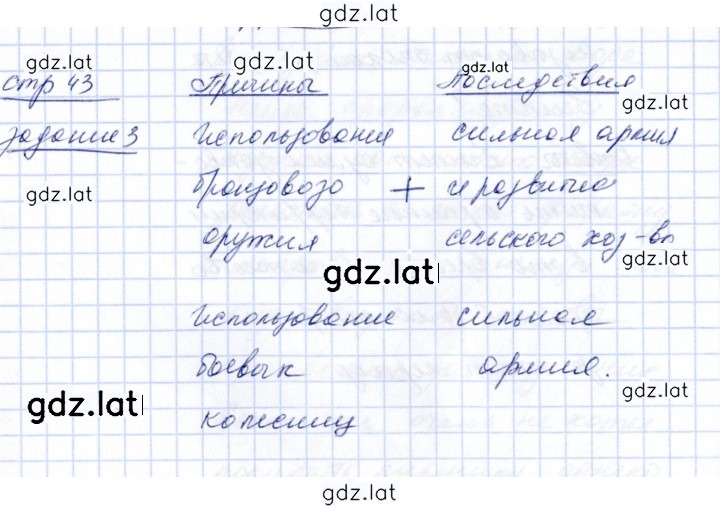 gdz.latǀ
gdz.latǀ gdz.latǀ
стр 43 Причины Последствия
gdz.latǀ
задание 3 Использование сильная армия
gdz.latǀ
бронзового + и развитие
оружия сельского хоз-ва
gdz.latǀ
Использование сильная
боевых армия.
gdz.latǀ
gdz.latǀ
колесниц
gdz.latǀ